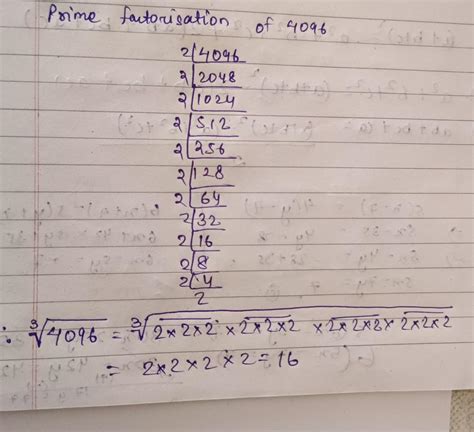 Prime factorisation of 4096
2 | 4096
2 | 2048
2 | 1024
2 | 512
2 | 256
2 | 128
2 | 64
2 | 32
2 | 16
2 | 8
2 | 4
2
∴ ∛4096 = ∛2×2×2 ×2×2×2 ×2×2×2× 2×2×2
= 2×2×2×2=16